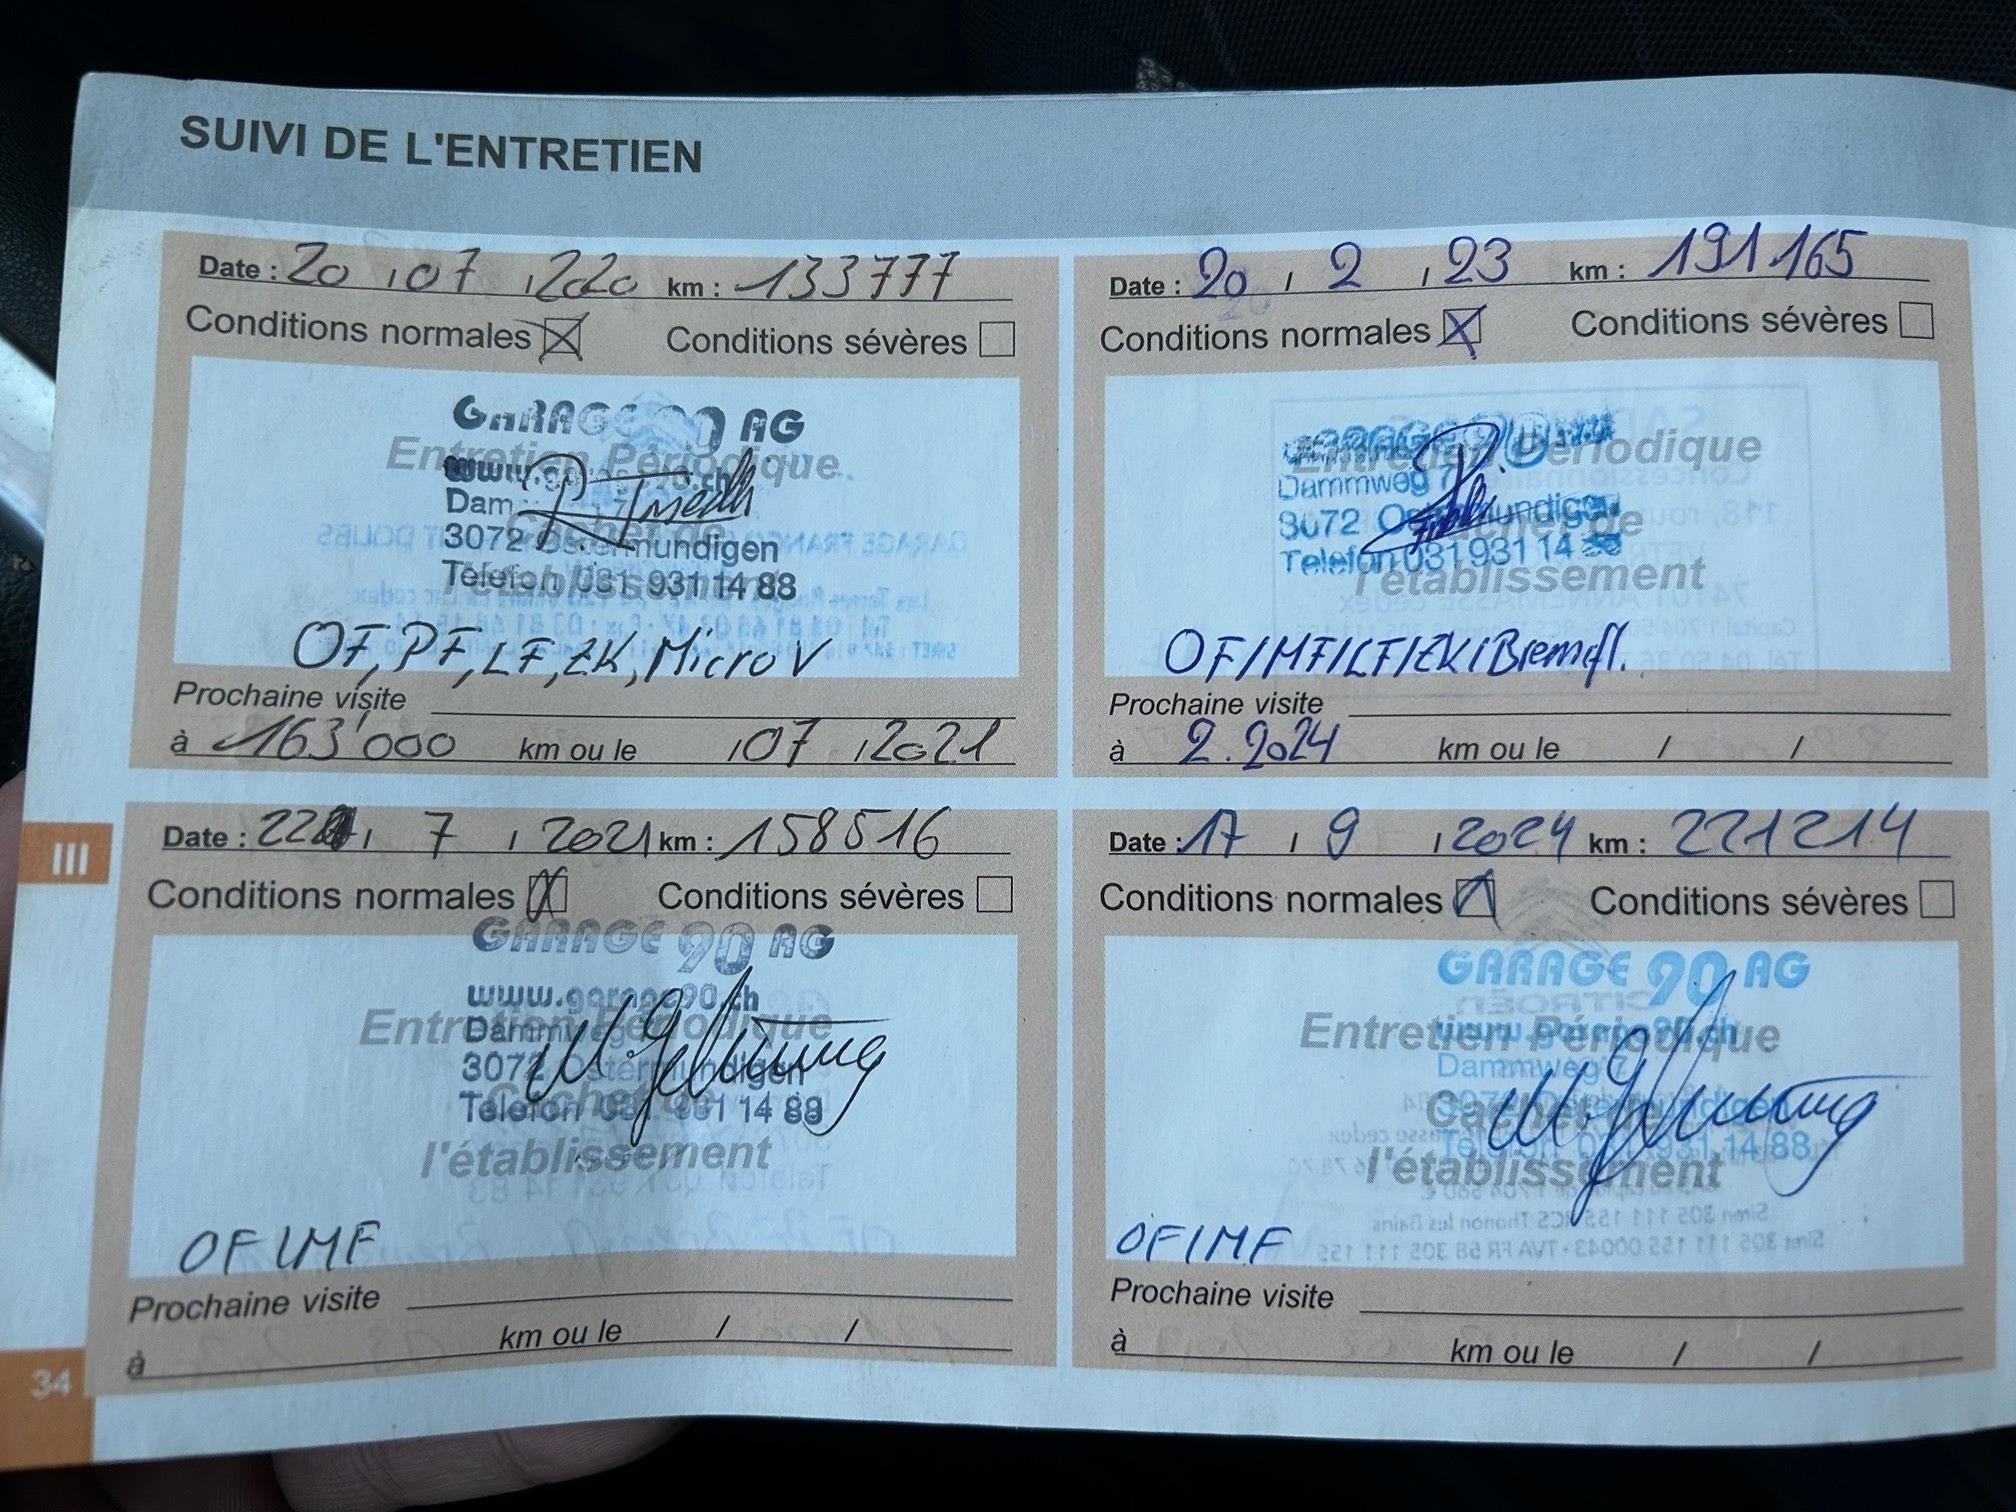 SUIVI DE L'ENTRETIEN
Date : 20 / 07 / 2020 km : 133777
Conditions normales Conditions sévères
GARAGE 90 AG
Entretien Périodique
www.garage90.ch
Dam
3072 Ostermundigen
Telefon 031 931 14 88
l'établissement
OF, PF, LF, ZK, Micro V
Prochaine visite
à 163'000 km ou le / 07 / 2021
Date : 22 / 7 / 2021 km : 158516
Conditions normales Conditions sévères
GARAGE 90 AG
www.garage90.ch
Entretien Périodique
Dammweg
3072 Ostermundigen
Cachet de
Telefon 031 931 14 88
l'établissement
OF / MF
Prochaine visite
à km ou le / /
Date : 20 / 2 / 23 km : 191165
Conditions normales Conditions sévères
GARAGE 90
Entretien Périodique
Dammweg 7
3072 Ostermundigen
Cachet de
Telefon 031 931 14
l'établissement
OF/MF/LF/ZK/Bremsfl.
Prochaine visite
à 2.2024 km ou le / /
Date : 17 / 9 / 2024 km : 221214
Conditions normales Conditions sévères
GARAGE 90 AG
www.garage90.ch
Entretien Périodique
Dammweg 7
3072 Ostermundigen
Cachet de
Telefon 031 931 14 88
l'établissement
OF/MF
Prochaine visite
à km ou le / /
III
34